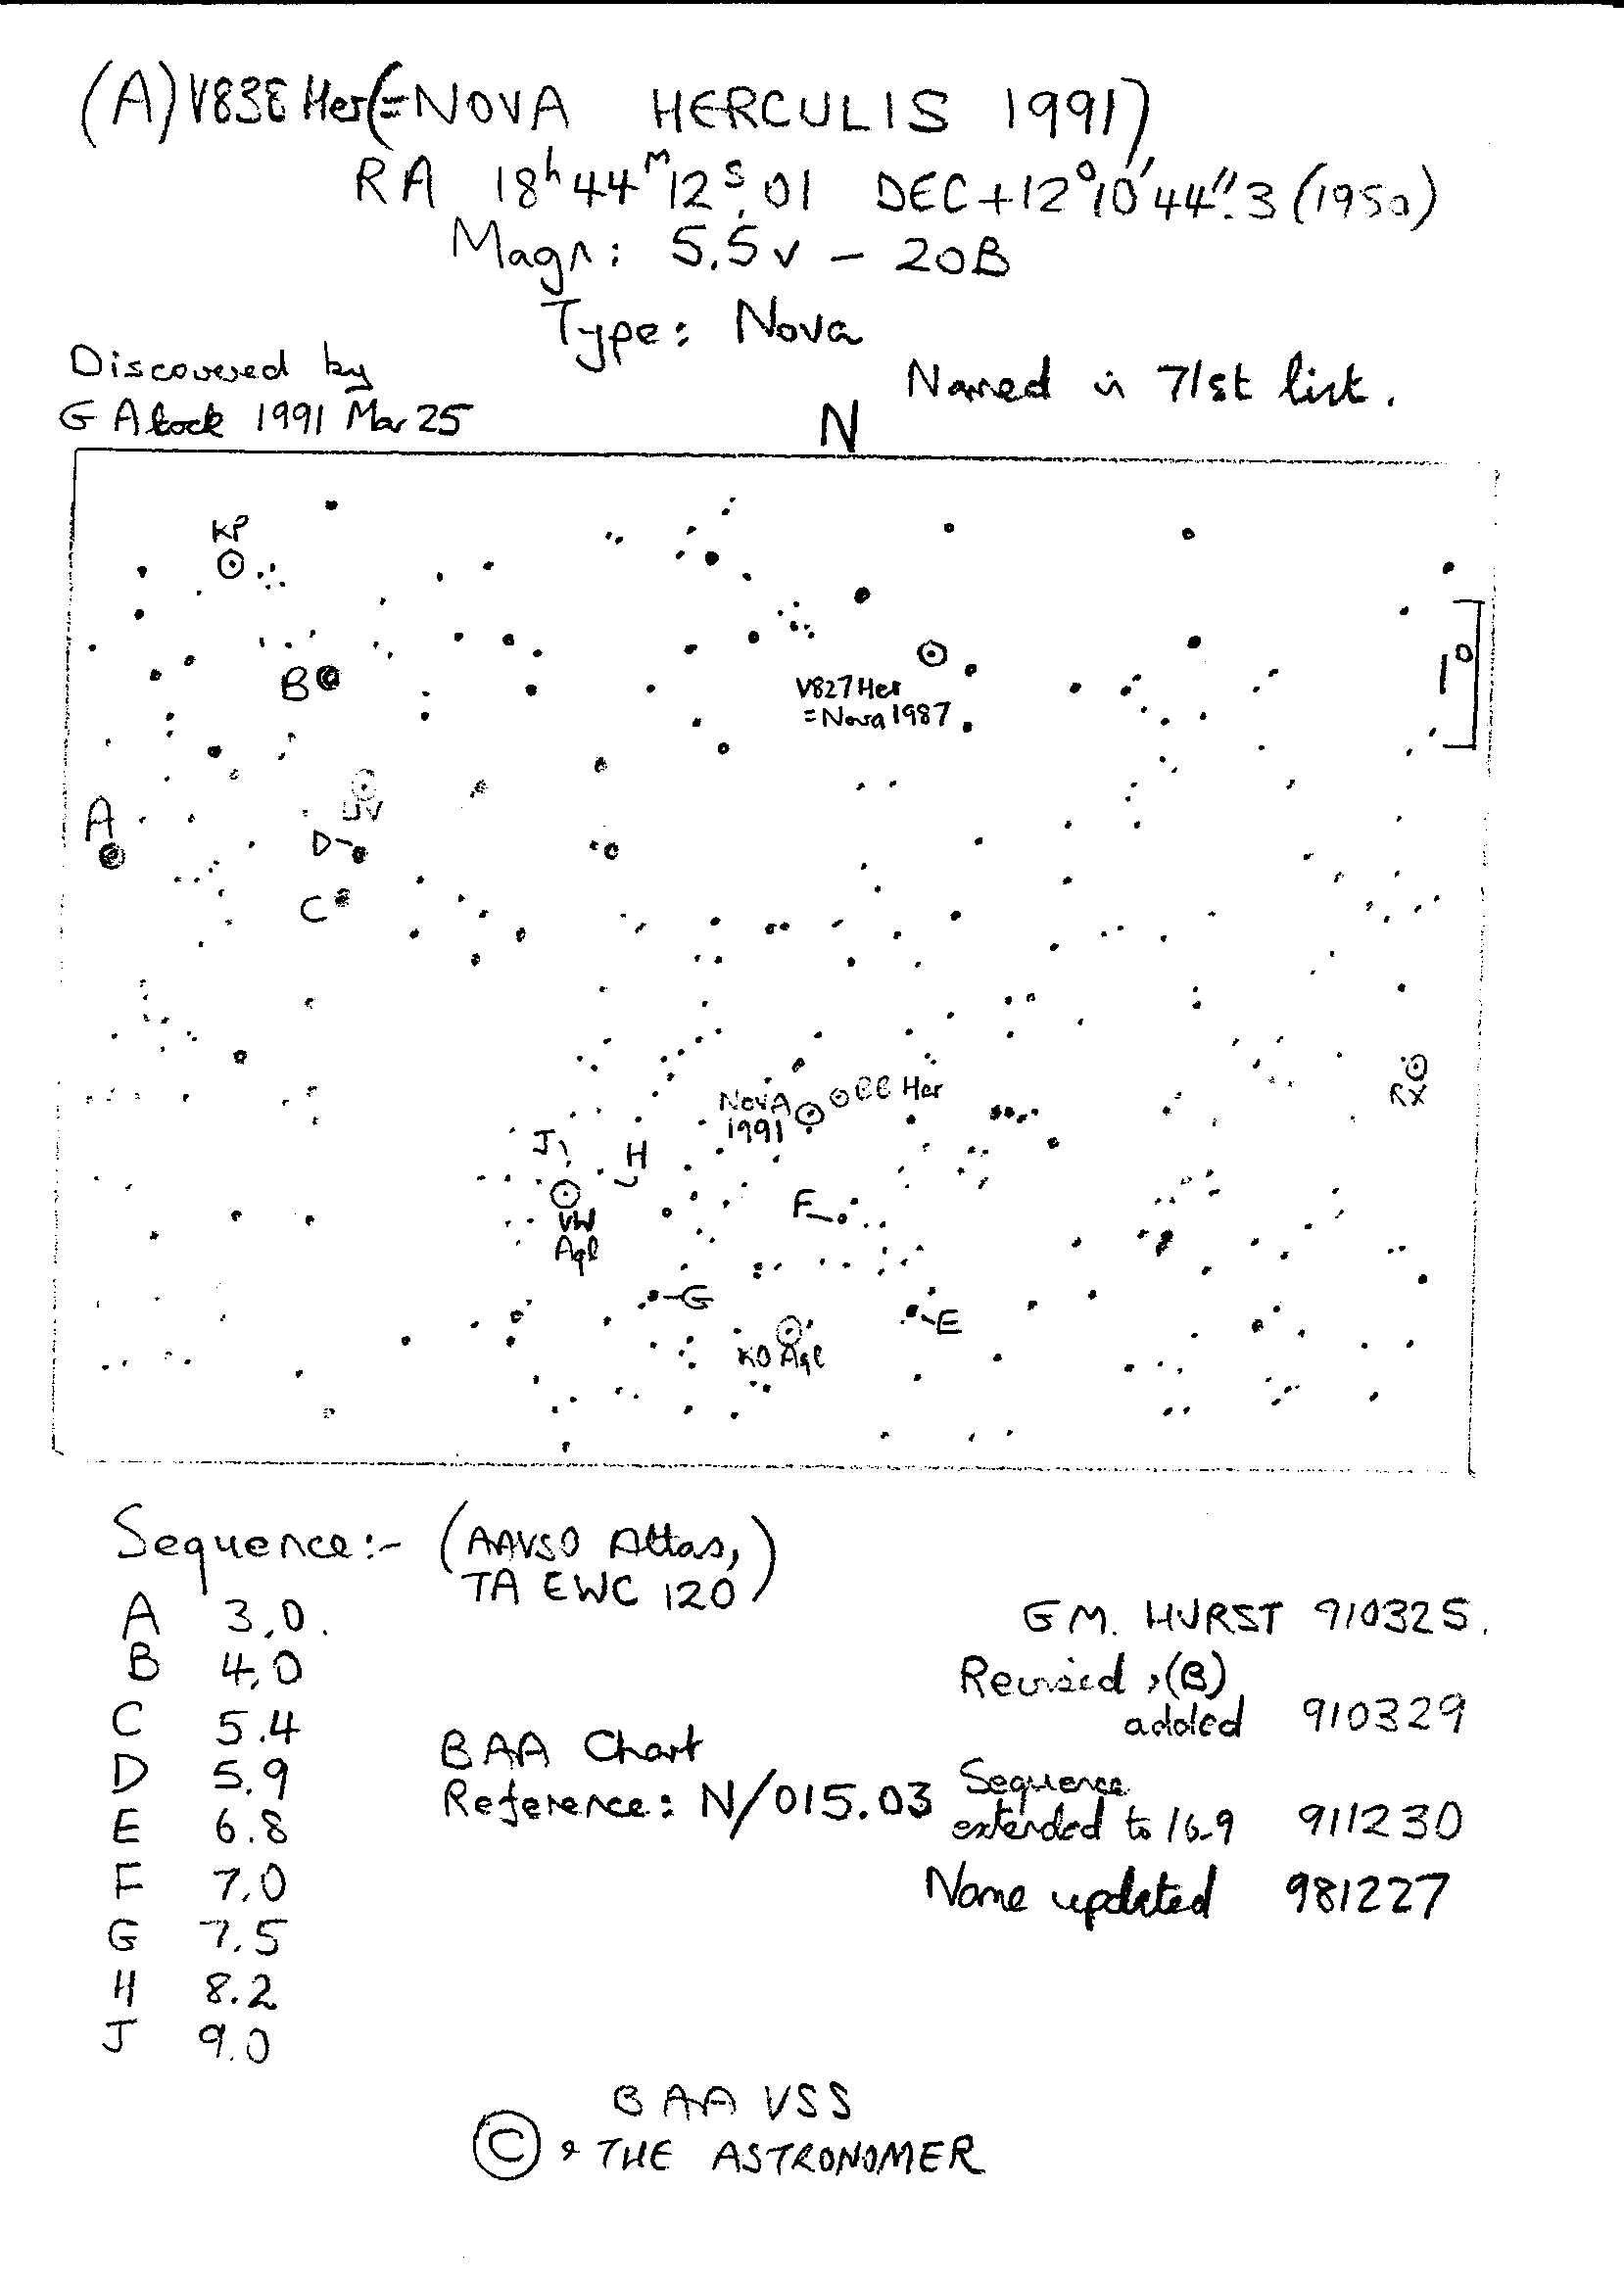 (A) V838 Her (=NOVA HERCULIS 1991)
RA 18h 44m 12s.01 DEC +12° 10' 44".3 (1950)
Magn: 5.5v - 20B
Type: Nova
Discovered by
G Alcock 1991 Mar 25
Named in 71st list.
N
KP
B
V827 Her
=Nova 1987
1°
UV
A
D
C
NOVA
1991
BB Her
RX
J
H
VW
Aql
F
G
E
KO Aql
Sequence:- (AAVSO Atlas,
TA EWC 120)
A 3.0.
B 4.0
C 5.4
D 5.9
E 6.8
F 7.0
G 7.5
H 8.2
J 9.0
BAA Chart
Reference: N/015.03
GM. HURST 910325.
Revised, (B)
added 910329
Sequence
extended to 16.9 911230
Name updated 981227
BAA VSS
© & THE ASTRONOMER